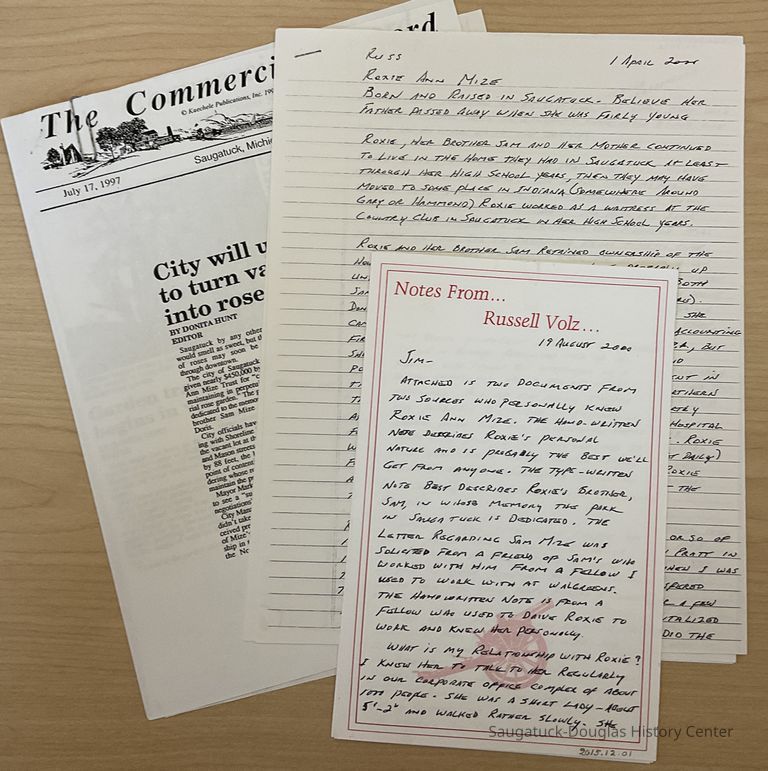 The Commerci
ord
© Kaechele Publications, Inc. 199
Saugatuck, Michi
July 17, 1997
City will u
to turn va
into rose
BY DONITA HUNT
EDITOR
Saugatuck by any other
would smell as sweet, but th
of roses may soon be
through downtown.
The city of Saugatuck
given nearly $450,000 by
Ann Mize Trust for "c
maintaining in perpetu
rial rose garden." The g
dedicated to the memo
brother Sam Mize
Doris.
City officials have
ing with Shoreline
the vacant lot at th
and Mason streets
by 88 feet, the l
point of content
dering whose re
maintain the p
Mayor Mark
to see a "su
negotiations"
City Mana
didn't take
ceived pro
of Mize'
ship in t
the No
RUSS
1 APRIL 2000
ROXIE ANN MIZE
BORN AND RAISED IN SAUGATUCK - BELIEVE HER
FATHER PASSED AWAY WHEN SHE WAS FAIRLY YOUNG
ROXIE, HER BROTHER SAM AND HER MOTHER CONTINUED
TO LIVE IN THE HOME THEY HAD IN SAUGATUCK AT LEAST
THROUGH HER HIGH SCHOOL YEARS, THEN THEY MAY HAVE
MOVED TO SOME PLACE IN INDIANA (SOMEWHERE AROUND
GARY OR HAMMOND) ROXIE WORKED AS A WAITRESS AT THE
COUNTRY CLUB IN SAUGATUCK IN HER HIGH SCHOOL YEARS.
ROXIE AND HER BROTHER SAM RETAINED OWNERSHIP OF THE
UP
BOTH
SHE
ACCOUNTING
ER, BUT
ENT IN
RTHERN
TRY
HOSPITAL
. ROXIE
T DAILY)
ROXIE
THE
OR SO OF
PRATT IN
WHEN I WAS
PERED
R A FEW
ITALIZED
DID THE
Notes From...
Russell Volz...
19 AUGUST 2000
JIM-
ATTACHED IS TWO DOCUMENTS FROM
TWO SOURCES WHO PERSONALLY KNEW
ROXIE ANN MIZE. THE HAND-WRITTEN
NOTE DESCRIBES ROXIE'S PERSONAL
NATURE AND IS PROBABLY THE BEST WE'LL
GET FROM ANYONE. THE TYPE-WRITTEN
NOTE BEST DESCRIBES ROXIE'S BROTHER,
SAM, IN WHOSE MEMORY THE PARK
IN SAUGATUCK IS DEDICATED. THE
LETTER REGARDING SAM MIZE WAS
SOLICITED FROM A FRIEND OF SAM'S WHO
WORKED WITH HIM FROM A FELLOW I
USED TO WORK WITH AT WALGREENS.
THE HANDWRITTEN NOTE IS FROM A
FELLOW WHO USED TO DRIVE ROXIE TO
WORK AND KNEW HER PERSONALLY.
WHAT IS MY RELATIONSHIP WITH ROXIE?
I KNEW HER TO TALK TO HER REGULARLY
IN OUR CORPORATE OFFICE COMPLEX OF ABOUT
1000 PEOPLE. SHE WAS A SHORT LADY - ABOUT
5'-2" AND WALKED RATHER SLOWLY. SHE
2015.12.01
Saugatuck-Douglas History Center